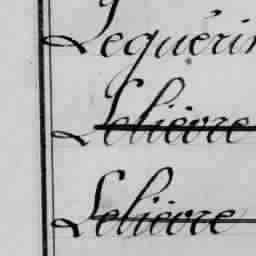 Lequérin
Lelièvre
Lelièvre